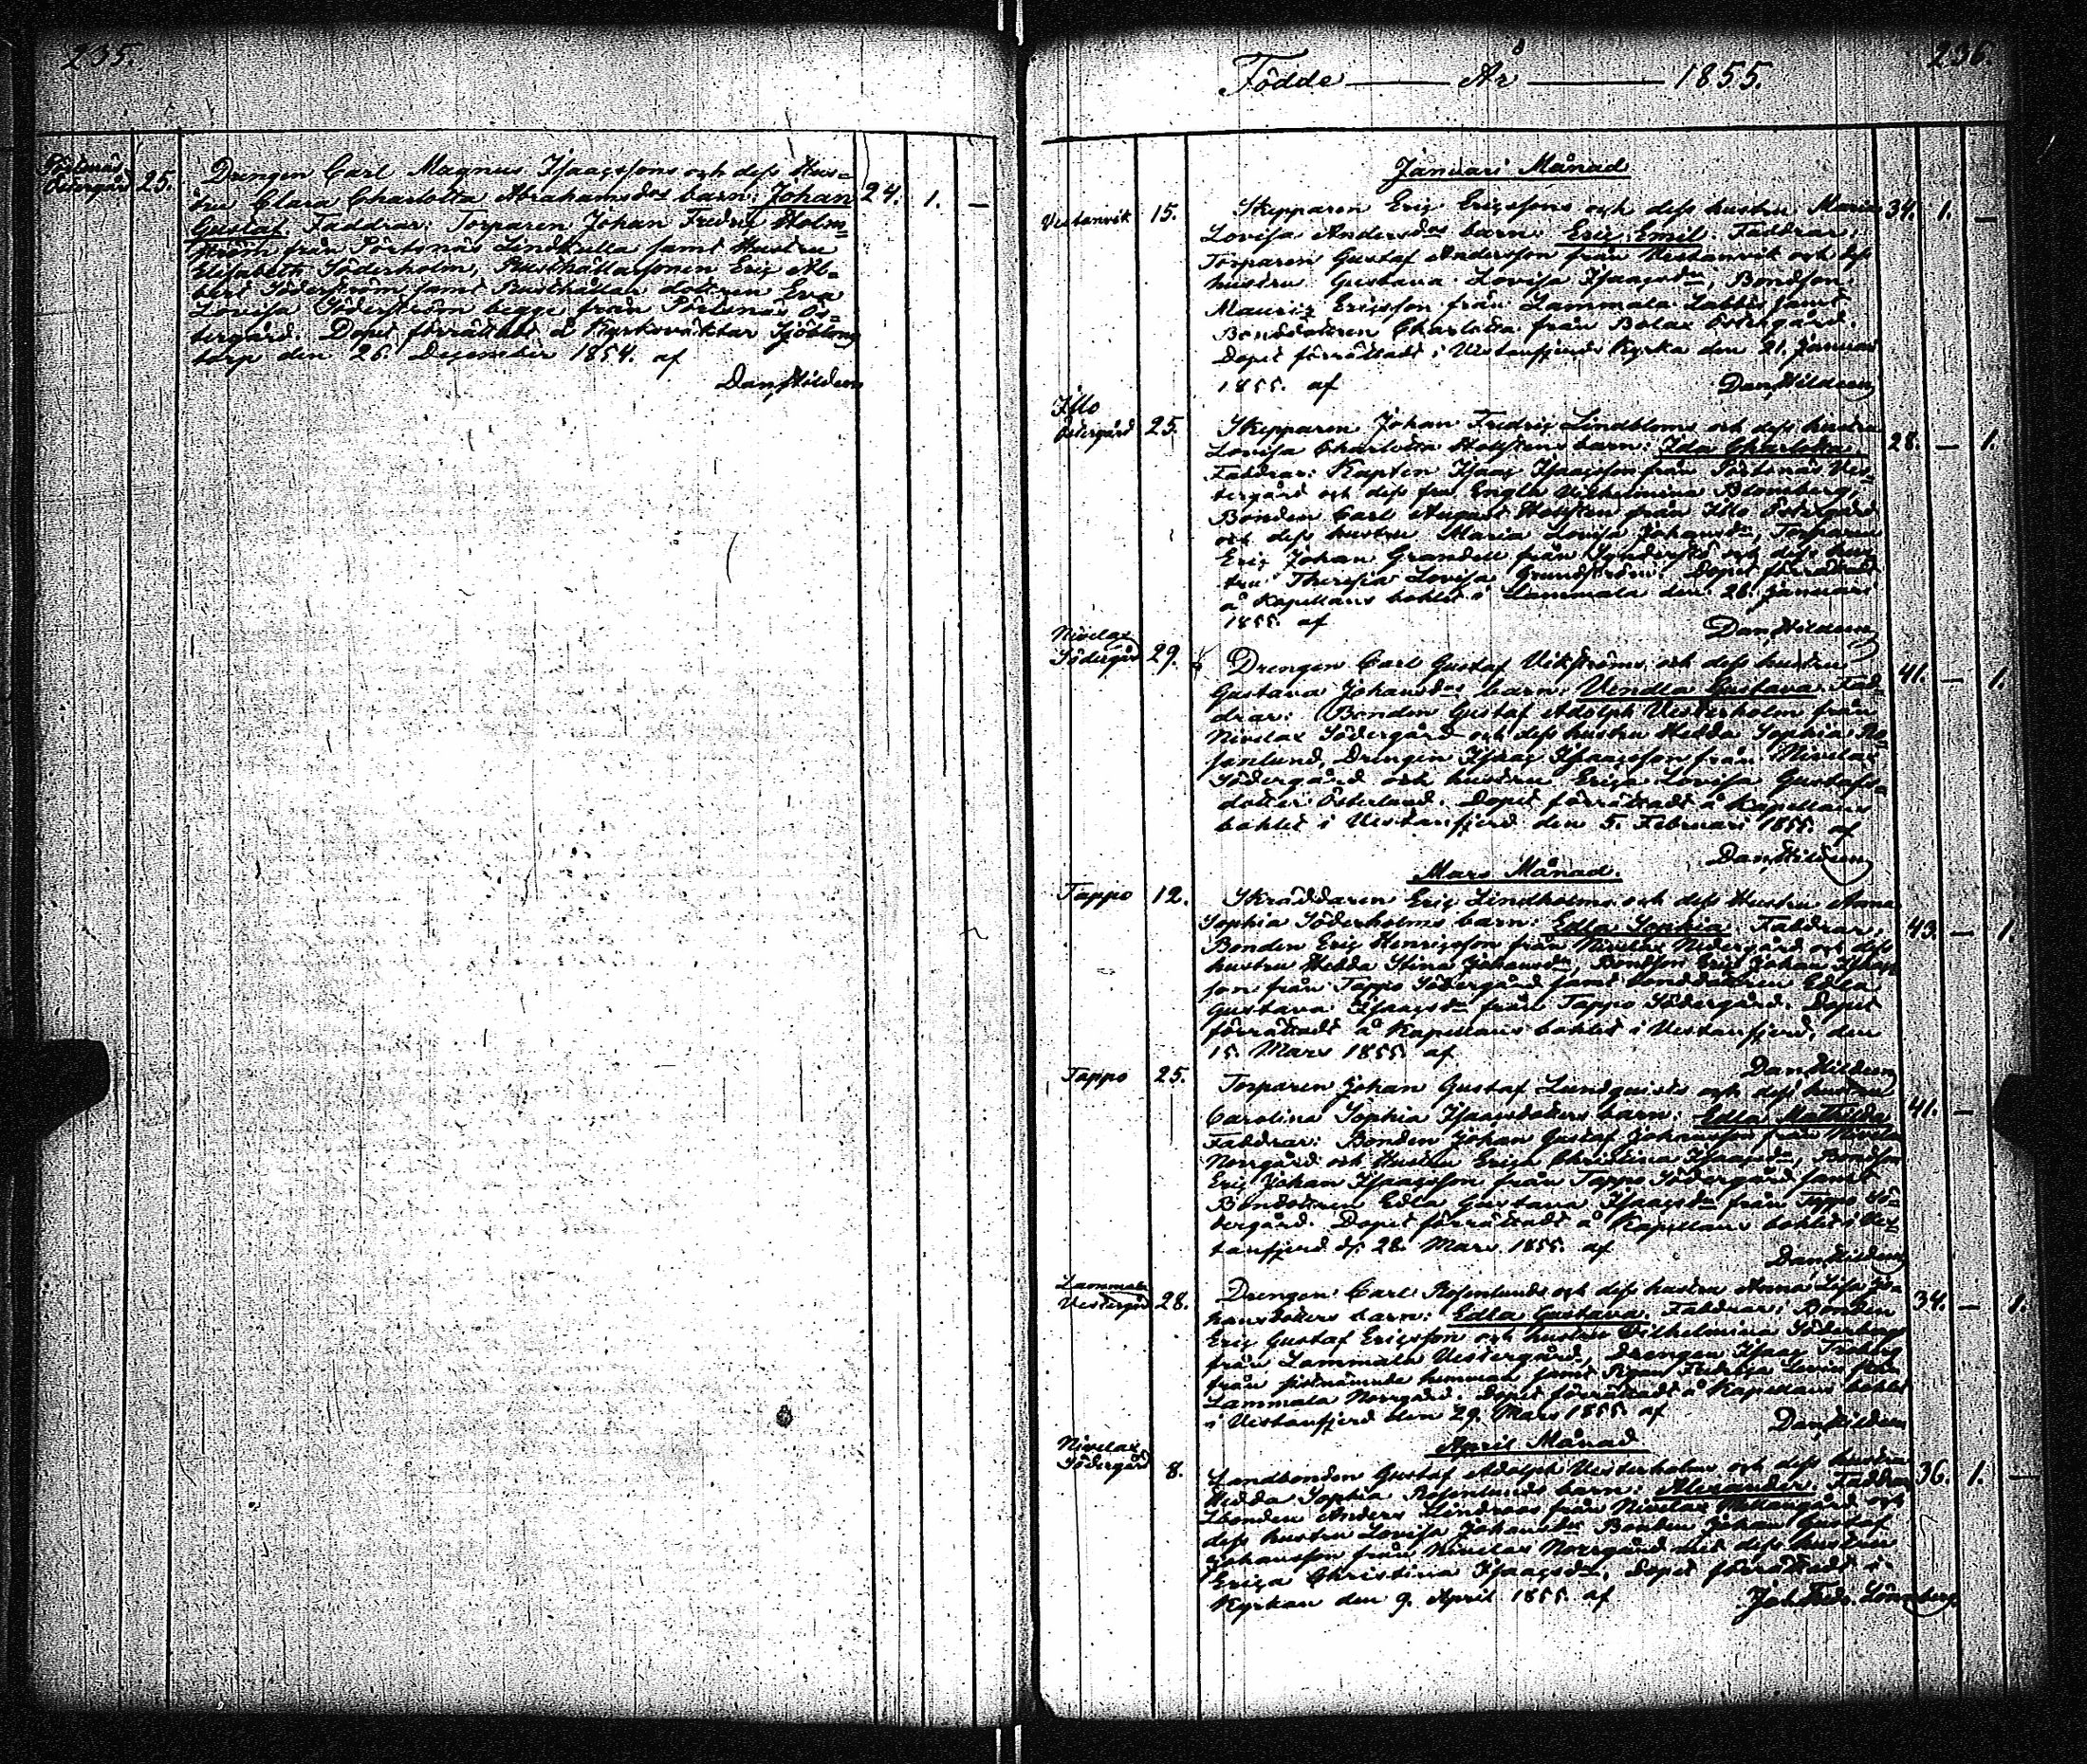 235.
Pörtsnäs
Östergård 25.
Drengen Carl Magnus Isaacssons och dess Hus-
tru Clara Charlotta Abrahamsdrs barn: Johan 24. 1. —
Gustaf. Faddrar: Torparen Johan Fredric Holm-
från Pörtsnäs Lindkulla samt Hustru
Elisabeth Söderholm, Rusthållarsonen Eric Al-
bert Söderström samt Rusthållar dottren Eva
Lovisa Söderström begge från Pörtsnäs Ös-
tergård. Dopet förrättadt å Kyrkovaktar
torp den 26. December 1854. af
Dan. Hildeen
236.
Födde — År — 1855.
Januari Månad
Vestanvik 15. Skepparen Eric Ericssons och dess hustru Maria 34. 1. —
Lovisa Andersdrs barn: Eric Emil. Faddrar:
Torparen Gustaf Andersson från Vestanvik och dess
hustru Gustava Lovisa Isaacsdr, Bondson
Mauritz Ericsson från Lammala Labbis samt
Bonddottren Charlotta från Bolax Östergård.
Dopet förrättadt i Vestanfjerds Kyrka den 21. Januari
1855. af Dan. Hildeen
Illo
Östergård 25. Skepparen Johan Fredric Lindbloms och dess hustru
Lovisa Charlotta Hollstens barn: Ida Charlotta. 28. — 1.
Faddrar: Kapten Isaac Isaacsson från Pörtsnäs Ves-
tergård och dess fru Engla Vilhelmina Blomberg,
Bonden Carl August Hollsten från Illo Östergård
och dess hustru Maria Lovisa Johansdr, Torparen
Eric Johan Grandell från och dess hus-
tru Theresia Lovisa Grundström. Dopet förrättadt
å Kapellans bohlet i Lammala den 26. Januari
1855. af Dan. Hildeen
Nivelax
Södergård 29. Drengen Carl Gustaf Vikströms och dess hustru
Gustava Johansdrs barn: Vendla Gustava. Fad- 41. — 1.
drar: Bonden Gustaf Adolph Vesterholm från
Nivelax Södergård och dess hustru Hedda Sophia Ro-
senlund, Drengen Isaac Isaacsson från Nivelax
Södergård och hustru Erica Lovisa Gustafs-
dotter Österlund. Dopet förrättadt å Kapellans
bohlet i Vestanfjerd den 5. Februari 1855. af
Dan. Hildeen
Mars Månad.
Tappo 12. Skräddaren Eric Lindholms och dess Hustru Anna
Sophia Söderholms barn: Edla Sophia. Faddrar: 43. — 1.
Bonden Eric Henricsson från Nivelax Nedergård och dess
hustru Hedda Stina Johansdr, Bondson Eric Johan Isaacs-
son från Tappo Södergård samt bonddottren Edla
Gustava Isaacsdr från Tappo Södergård. Dopet
förrättadt å Kapellans bohlet i Vestanfjerd, den
15. Mars 1855. af
Dan. Hildeen
Tappo 25. Torparen Johan Gustaf Lundqvists och dess hustru
Carolina Sophia Isaacsdotters barn: Edla Mathilda 41. —
Faddrar: Bonden Johan Gustaf Johansson från Nivelax
Norrgård och Hustru Erica Christina Isaacsdr, Bondson
Eric Johan Isaacsson från Tappo Södergård samt
Bondottren Edla Gustava Isaacsdr från Tappo Sö-
dergård. Dopet förrättadt å Kapellans bohlet i Ves-
tanfjerd d. 28. Mars 1855. af
Dan. Hildeen
Lammala
Vestergård 28. Drengen Carl Rosenlunds och dess hustru Anna Lisa Jo-
hansdotters barn: Edla Gustava. Faddrar: Bonden 34. — 1.
Eric Gustaf Ericsson och hustru Vilhelmina Söderberg
från Lammala Vestergård, Drengen Isaac
från sistnämnde hemman samt Pigan Fredrica från
Lammala Norrgård. Dopet förrättadt å Kapellans bohlet
i Vestanfjerd den 29. Mars 1855. af Dan. Hildeen
April Månad
Nivelax
Södergård 8. Landbonden Gustaf Adolph Vesterholms och dess hustru
Hedda Sophia Rosenlunds barn: Alexander. Faddrar 36. 1. —
Lbonden Anders Lindroos från Nivelax Mellangård och
dess hustru Lovisa Johansdr Bonden Johan Gustaf
Johansson från Nivelax Norrgård med dess hustru
Erica Christina Isaacsdr. Dopet förrättadt i
Kyrkan den 9. April 1855. af Joh. Fredr. Lönnberg